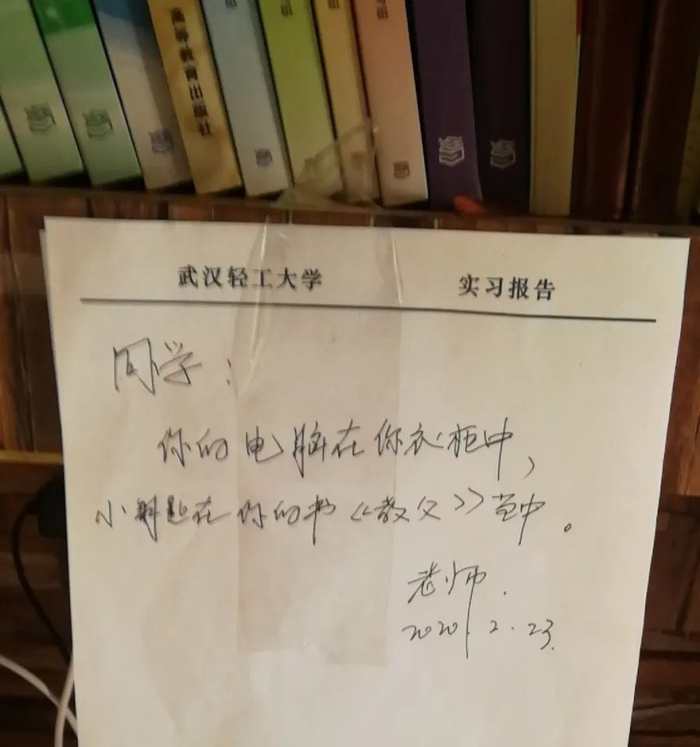 高等教育出版社
武汉轻工大学 实习报告
同学：
你的电脑在你衣柜中，
小钥匙在你的书《教父》当中。
老师.
2020.2.23.